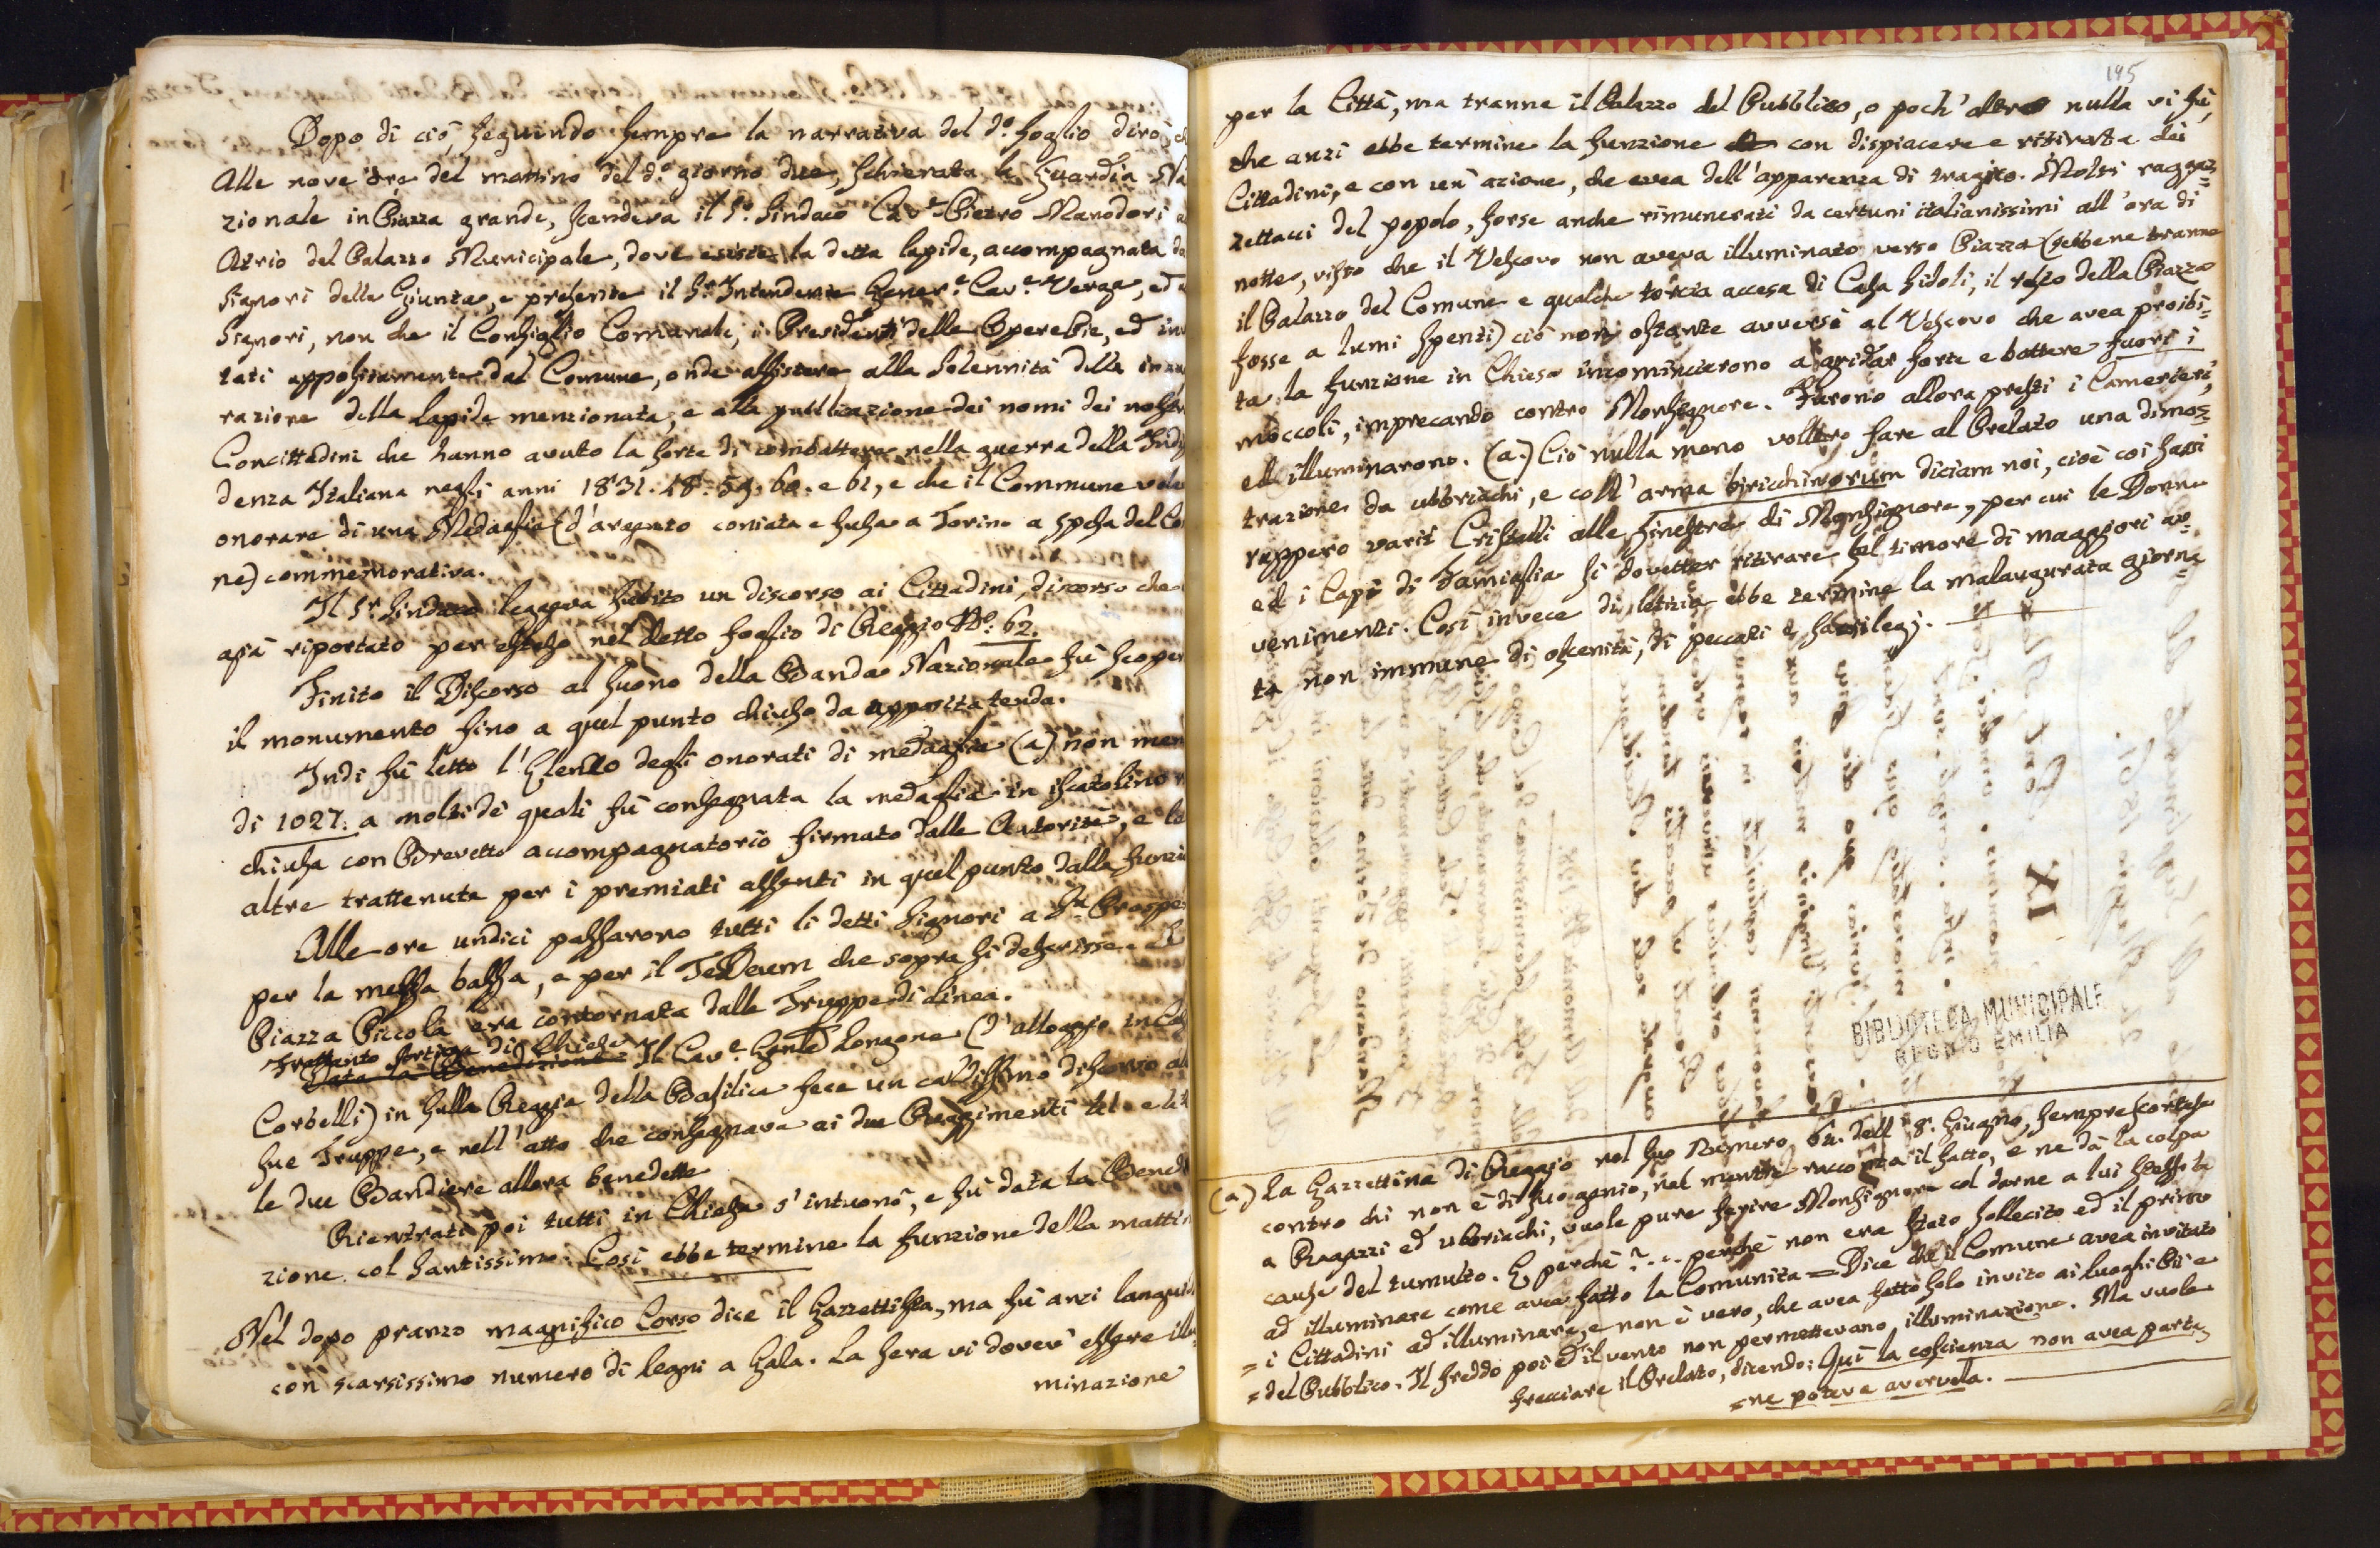 Dopo di ciò, seguendo sempre la narrativa del d.º foglio dirò, ch
Alle nove ore del mattino del d.º giorno due, schierata la Guardia Na
zionale in Piazza grande, scendeva il S.r Sindaco Cav.e Pietro Manodori
Atrio del Palazzo Municipale, dove esiste la detta lapide, accompagnata da
Signori della Giunta, e presente il S.r Intendente Gener.e Cav.e Verga, ed a
Signori, non che il Consiglio Comunale, i Presidenti delle Opere Pie, ed inv
tati appositamente dal Comune, onde assistere alla Solennità della inau
razione della lapide menzionata, e alla pubblicazione dei nomi dei nostr
Concittadini che hanno avuto la sorte di combattere nella guerra della Indi
denza Italiana negli anni 1831. 48. 59. 60. e 61, e che il Commune vole
onorare di una Medaglia (d'argento coniata e fusa a Torino a spesa del Co
ne) commemorativa.
Il S.r Sindaco leggeva subito un discorso ai Cittadini, discorso che
già riportato per esteso nel detto foglio di Reggio Nº: 62.
Finito il Discorso al suono della Banda Nazionale fù scoper
il monumento fino a quel punto chiuso da apposita tenda.
Indi fù letto l'Elenco degli onorati di medaglia (a) non men
di 1027. a molti dei quali fù consegnata la medaglia in iscatolino r
chiusa con Brevetto accompagnatorio firmato dalle Autorità, e le
altre trattenute per i premiati assenti in quel punto dalla funzio
Alle ore undici passarono tutti li detti Signori a S.n Prospe
per la messa bassa, e per il TeDeum che sopra si descrisse. e la
Piazza Piccola era contornata dalle Truppe di Linea.
Frattanto sortiva di Chiesa
Data la Benedizione Il Cav.e Gen.le Longone (d'alloggio in Ca
Corbelli) in sulla Reggia della Basilica fece un caldissimo discorso al
sue Truppe, e nell'atto che consegnava ai due Reggimenti
le due Bandiere allora benedette
Rientrati poi tutti in Chiesa s'intuonò, e fù data la Bened
zione col Santissimo. Così ebbe termine la funzione della mattin
Nel dopo pranzo magnifico Corso dice il Gazzettista, ma fù anzi languid
con scarsissimo numero di legni a Gala. La sera vi dovea essere illu
minazione
195
per la Città, ma tranne il Palazzo del Pubblico, o poch'altro nulla vi fù,
che anzi ebbe termine la funzione con dispiacere e ritirata dei
Cittadini, e con un'azione, che avea dell'apparenza di tragico. Molti raggaz=
zettacci del popolo, forse anche rimunerati da certuni italianissimi all'ora di
notte, visto che il Vescovo non aveva illuminato verso Piazza (sebbene tranne
il Palazzo del Comune e qualche torcia accesa di Casa Sidoli, il resto della Piazza
fosse a lumi spenti) ciò non ostante avversi al Vescovo che avea proibi=
ta la funzione in Chiesa incominciarono a gridar forte e battere fuori i
moccoli, imprecando contro Monsignore. Furono allora presti i Camerieri,
ed illuminarono. (a.) Ciò nulla meno vollero fare al Prelato una dimos=
trazione da ubbriachi, e coll'arma biricchinorum diciam noi, cioè coi sassi
ruppero varii Cristalli alle finestre di Monsignore, per cui le Donne
ed i Capi di Famiglia si dovetter ritirare pel timore di maggiori av=
venimenti. Così invece di letizia ebbe termine la malaugurata giorna=
ta non immune di oscenità, di peccati e sacrilegj.
BIBLIOTECA MUNICIPALE
REGGIO EMILIA
(a) La Gazzettina di Reggio nel suo Numero 64. dell'8. Giugno, sempre scortese
contro chi non è di suo genio, nel mentre racconta il fatto, e ne dà la colpa
a Ragazzi ed ubbriachi, vuole pure ferire Monsignore col darne a lui stesso la
causa del tumulto. E perchè?.... perchè non era stato sollecito ed il primo
ad illuminare come avea fatto la Comunità = Dice che il Comune avea invitato
= i Cittadini ad illuminare, e non è vero, che avea fatto solo invito ai luoghi Pii e
= del Pubblico. Il freddo poi ed il vento non permettevano illuminazione. Ma vuole
frecciare il Prelato, dicendo: Quì la coscienza non avea parte,
= ne poteva avervela.